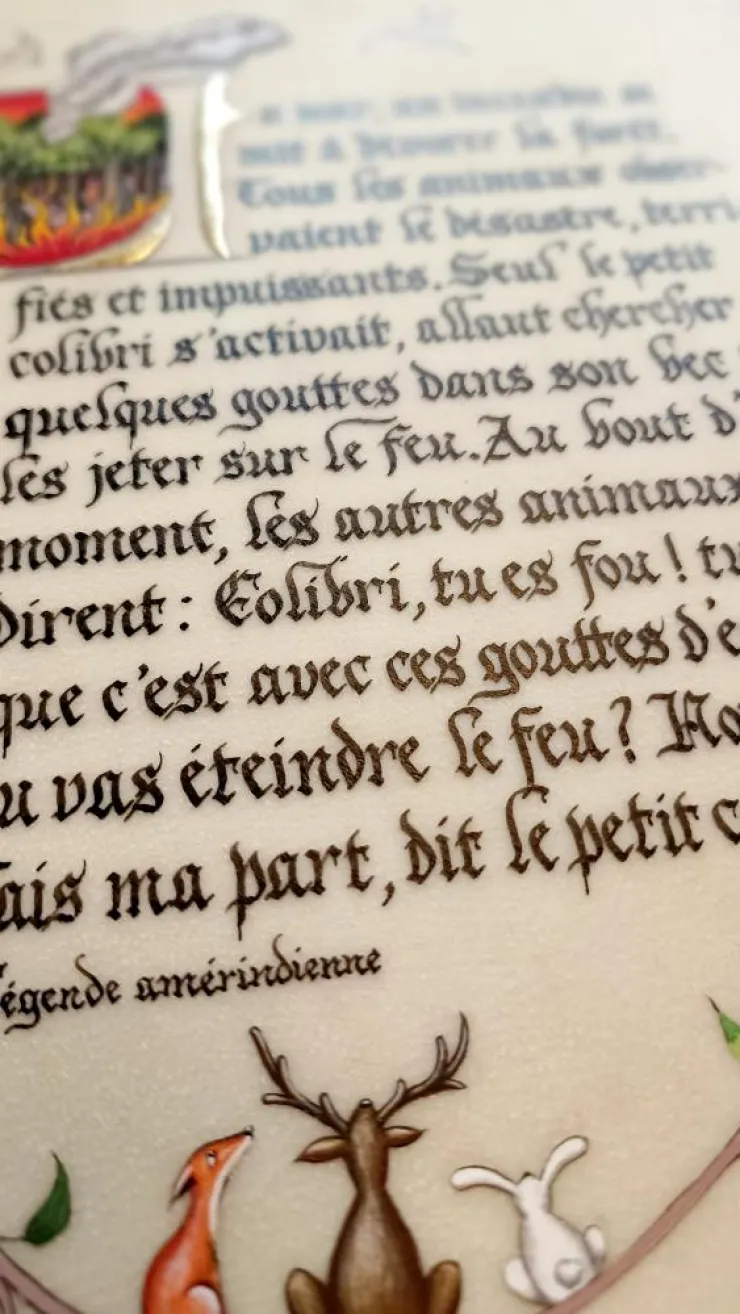 n jour, un incendie se
mit à dévorer la forêt.
Tous les animaux obser-
vaient le désastre, terri
fiés et impuissants. Seul le petit
colibri s'activait, allant chercher
quelques gouttes dans son bec
les jeter sur le feu. Au bout d'
moment, les autres animaux
dirent : Colibri, tu es fou ! tu
que c'est avec ces gouttes d'e
u vas éteindre le feu ? No
ais ma part, dit le petit c
égende amérindienne